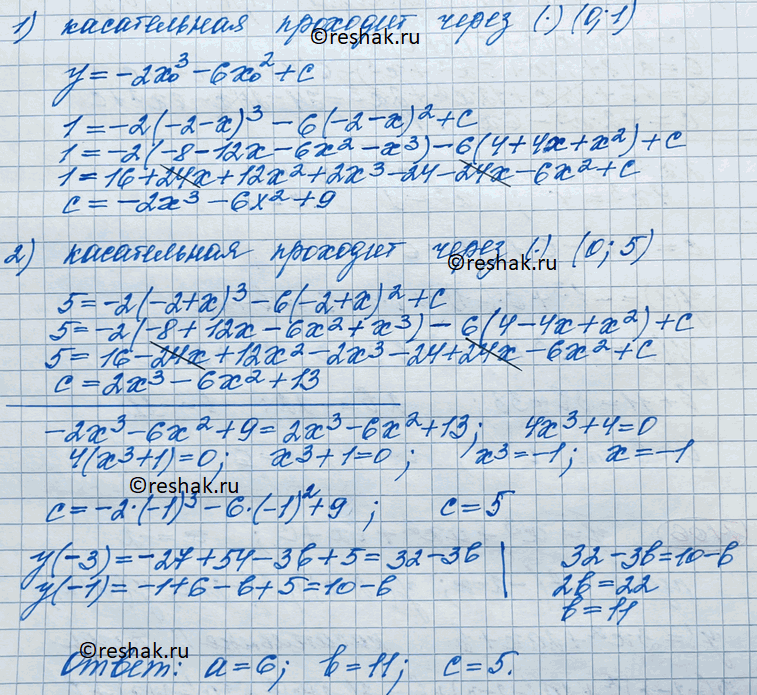 1) касательная проходит через (·) (0;1)
©reshak.ru
y = -2x₀³ - 6x₀² + c
1 = -2(-2-x)³ - 6(-2-x)² + c
1 = -2(-8-12x-6x²-x³) - 6(4+4x+x²) + c
1 = 16+24x+12x²+2x³-24-24x-6x²+c
c = -2x³-6x²+9
2) касательная проходит через (·) (0;5)
©reshak.ru
5 = -2(-2+x)³ - 6(-2+x)² + c
5 = -2(-8+12x-6x²+x³) - 6(4-4x+x²) + c
5 = 16-24x+12x²-2x³-24+24x-6x²+c
c = 2x³-6x²+13
-2x³-6x²+9 = 2x³-6x²+13; 4x³+4=0
4(x³+1)=0; x³+1=0; x³=-1; x=-1
©reshak.ru
c = -2·(-1)³-6·(-1)²+9; c=5
y(-3) = -27+54-3b+5 = 32-3b | 32-3b=10-b
y(-1) = -1+6-b+5 = 10-b 2b=22
b=11
©reshak.ru
Ответ: a=6; b=11; c=5.